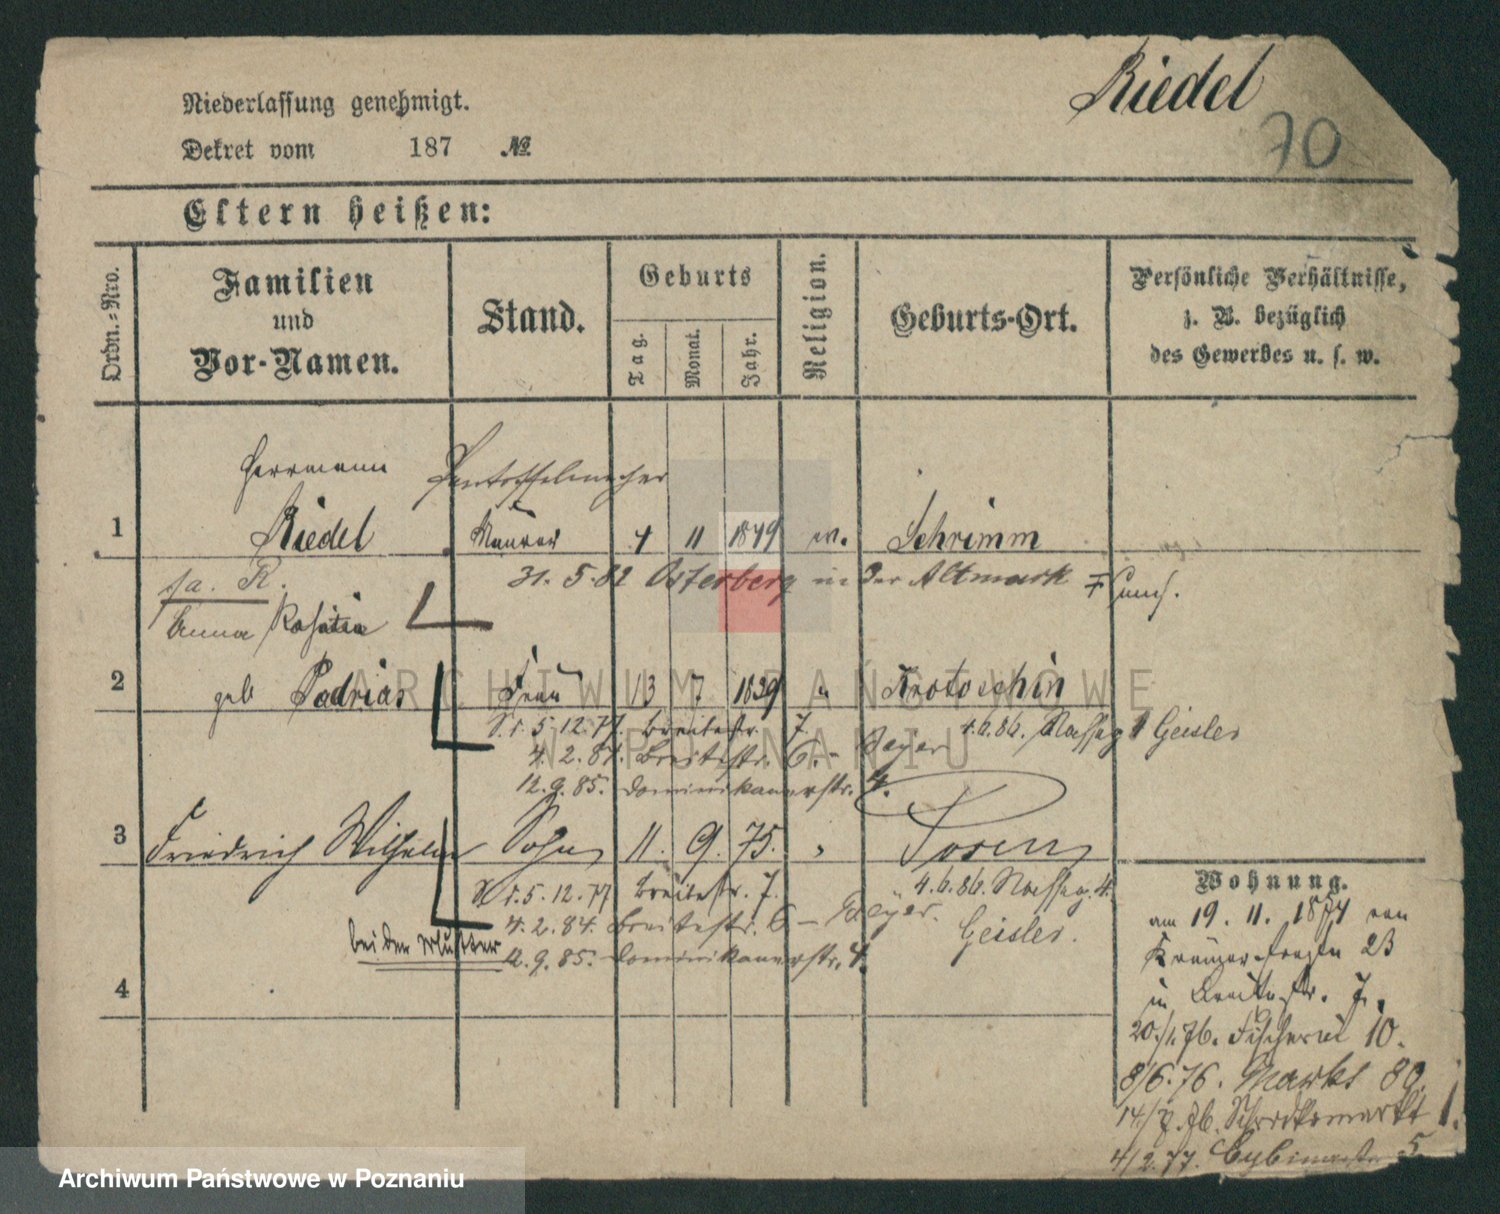 Riedel
70
Niederlassung genehmigt.
Dekret vom 187 №
Eltern heißen:
Ordn.-Nro.
Familien
und
Vor-Namen.
Stand.
Geburts
Tag.
Monat.
Jahr.
Religion.
Geburts-Ort.
Persönliche Verhältnisse,
z. B. bezüglich
des Gewerbes u. s. w.
Herrmann Pantoffelmacher
1 Riedel Maurer 4 11 1849 ev. Schrimm
fa. R. 31. 5. 82 Osterberg in der Altmark
Anna Rosina
2 geb Padrias Frau 13 7 1839 " Krotoschin
5.12.77 Breitestr. 7. 4.6.86. Geisler
4.2.84. Breitestr. 6. - Beyer
12.9.85. Dominikanerstr. 4.
3 Friedrich Wilhelm Sohn 11. 9. 75. " Posen
5.12.77 Breitestr. 7. 4.6.86. 4.
4.2.84. Breitestr. 6 - Beyer. Geisler.
bei der Mutter 12.9.85. Dominikanerstr. 4.
4
Wohnung.
am 19. 11. 1874 von
23
in Breitestr. 7.
20./1.76. Fischerei 10.
8/6.76. Markt 80.
14/7.76. 1.
4/2.77. 5
ARCHIWUM PAŃSTWOWE
W POZNANIU
Archiwum Państwowe w Poznaniu